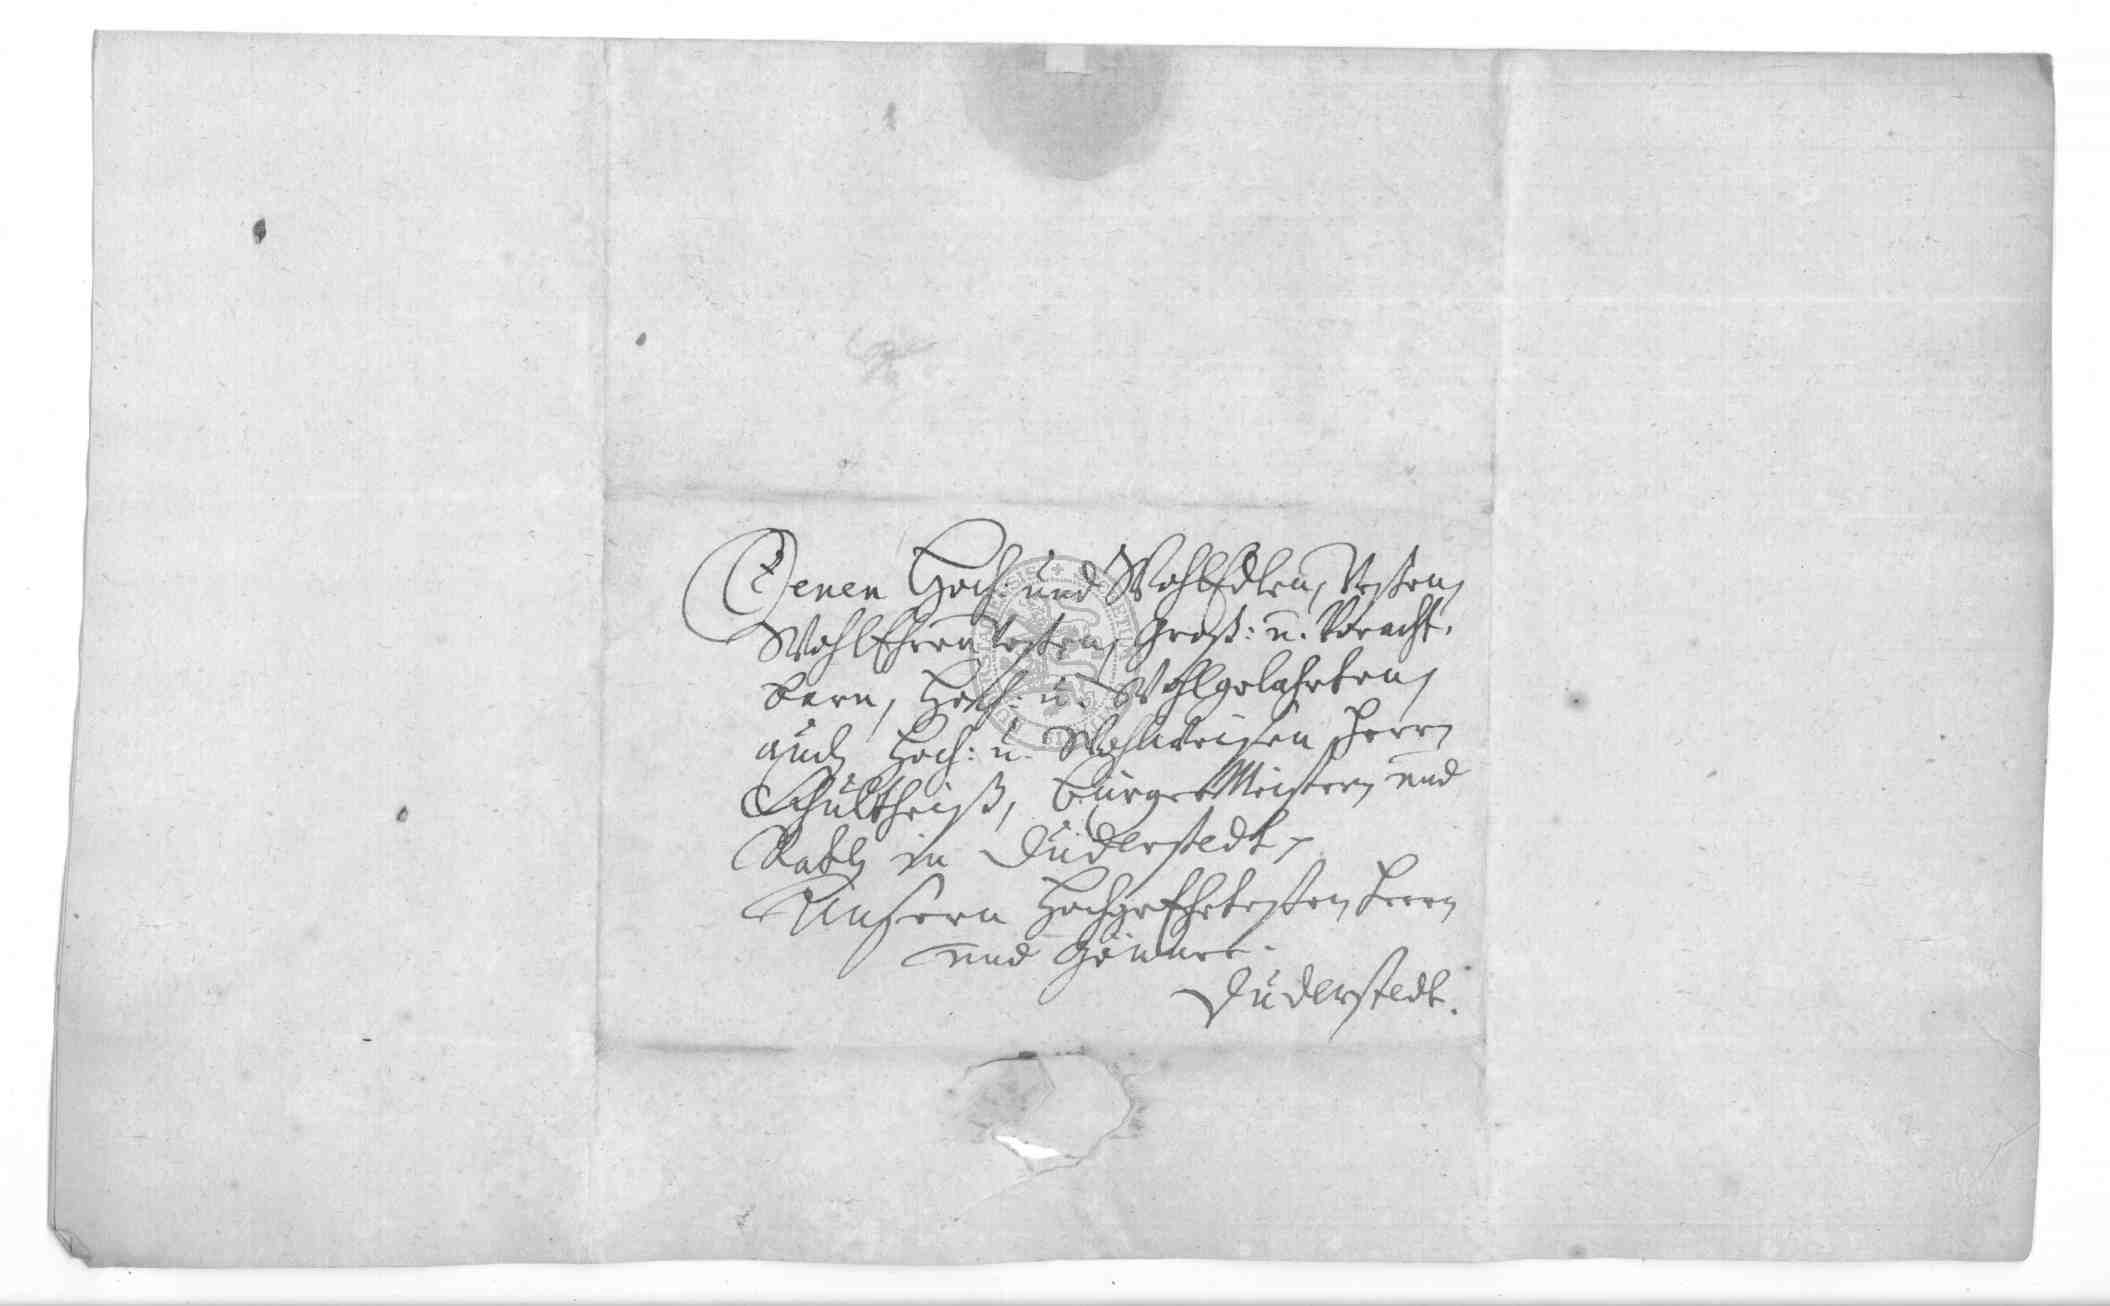 Denen Hoch: und WohlEdlen, Vesten,
WohlEhrenVesten, Groß: u. Voracht,
barn, Hoch: u. Wohlgelahrten,
auch Hoch: u. Wohlweisen Herrn
Schultheiß, BurgerMeistern und
Rath in Duderstedt,
Unsern HochgeEhrtesten Herrn
und Gönner.
Duderstedt.